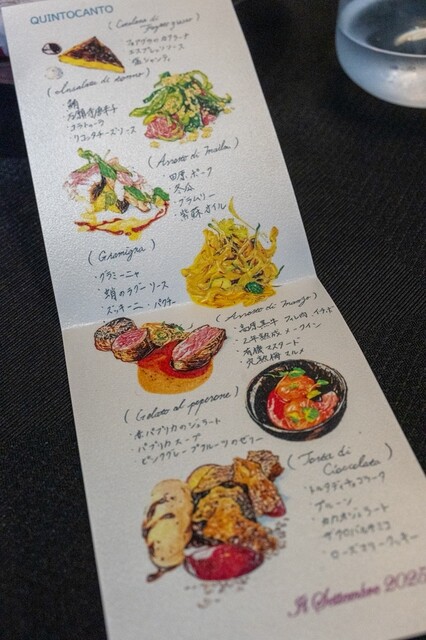 QUINTOCANTO
(Catalana di
Fegato grasso)
フォアグラのカタラーナ
エスプレッソソース
塩シャンティ
(Insalata di tonno)
・鮪
・万願寺唐辛子
・コラトゥーラ
・リコッタチーズソース
(Arrosto di Maiale)
・田原ポーク
・冬瓜
・プラムリー
・紫蘇オイル
(Gramigna)
・グラミーニャ
・蛸のラグーソース
・ズッキーニ・パクチー
(Arrosto di Manzo)
・黒毛和牛 フィレ肉 イチボ
・2年熟成 メークイン
・有機マスタード
・完熟梅マルメ
(Gelato al peperone)
・赤パプリカのジェラート
・パプリカスープ
・ピンクグレープフルーツのゼリー
(Torta di
Cioccolato)
・トルタディチョコラータ
・プルーン
・カカオジェラート
・ザクロバルサミコ
・ローズマリークッキー
Settembre 2025